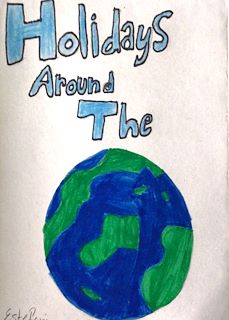 Holidays
Around
The